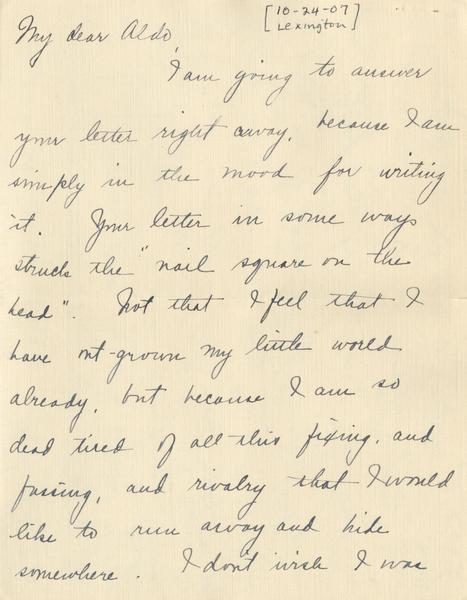 [10-24-07]
[Lexington]
My dear Aldo,
I am going to answer
your letter right away, because I am
simply in the mood for writing
it. Your letter in some ways
struck the "nail square on the
head". Not that I feel that I
have out-grown my little world
already, but because I am so
dead tired of all this fixing, and
fussing, and rivalry that I would
like to run away and hide
somewhere. I don't wish I was